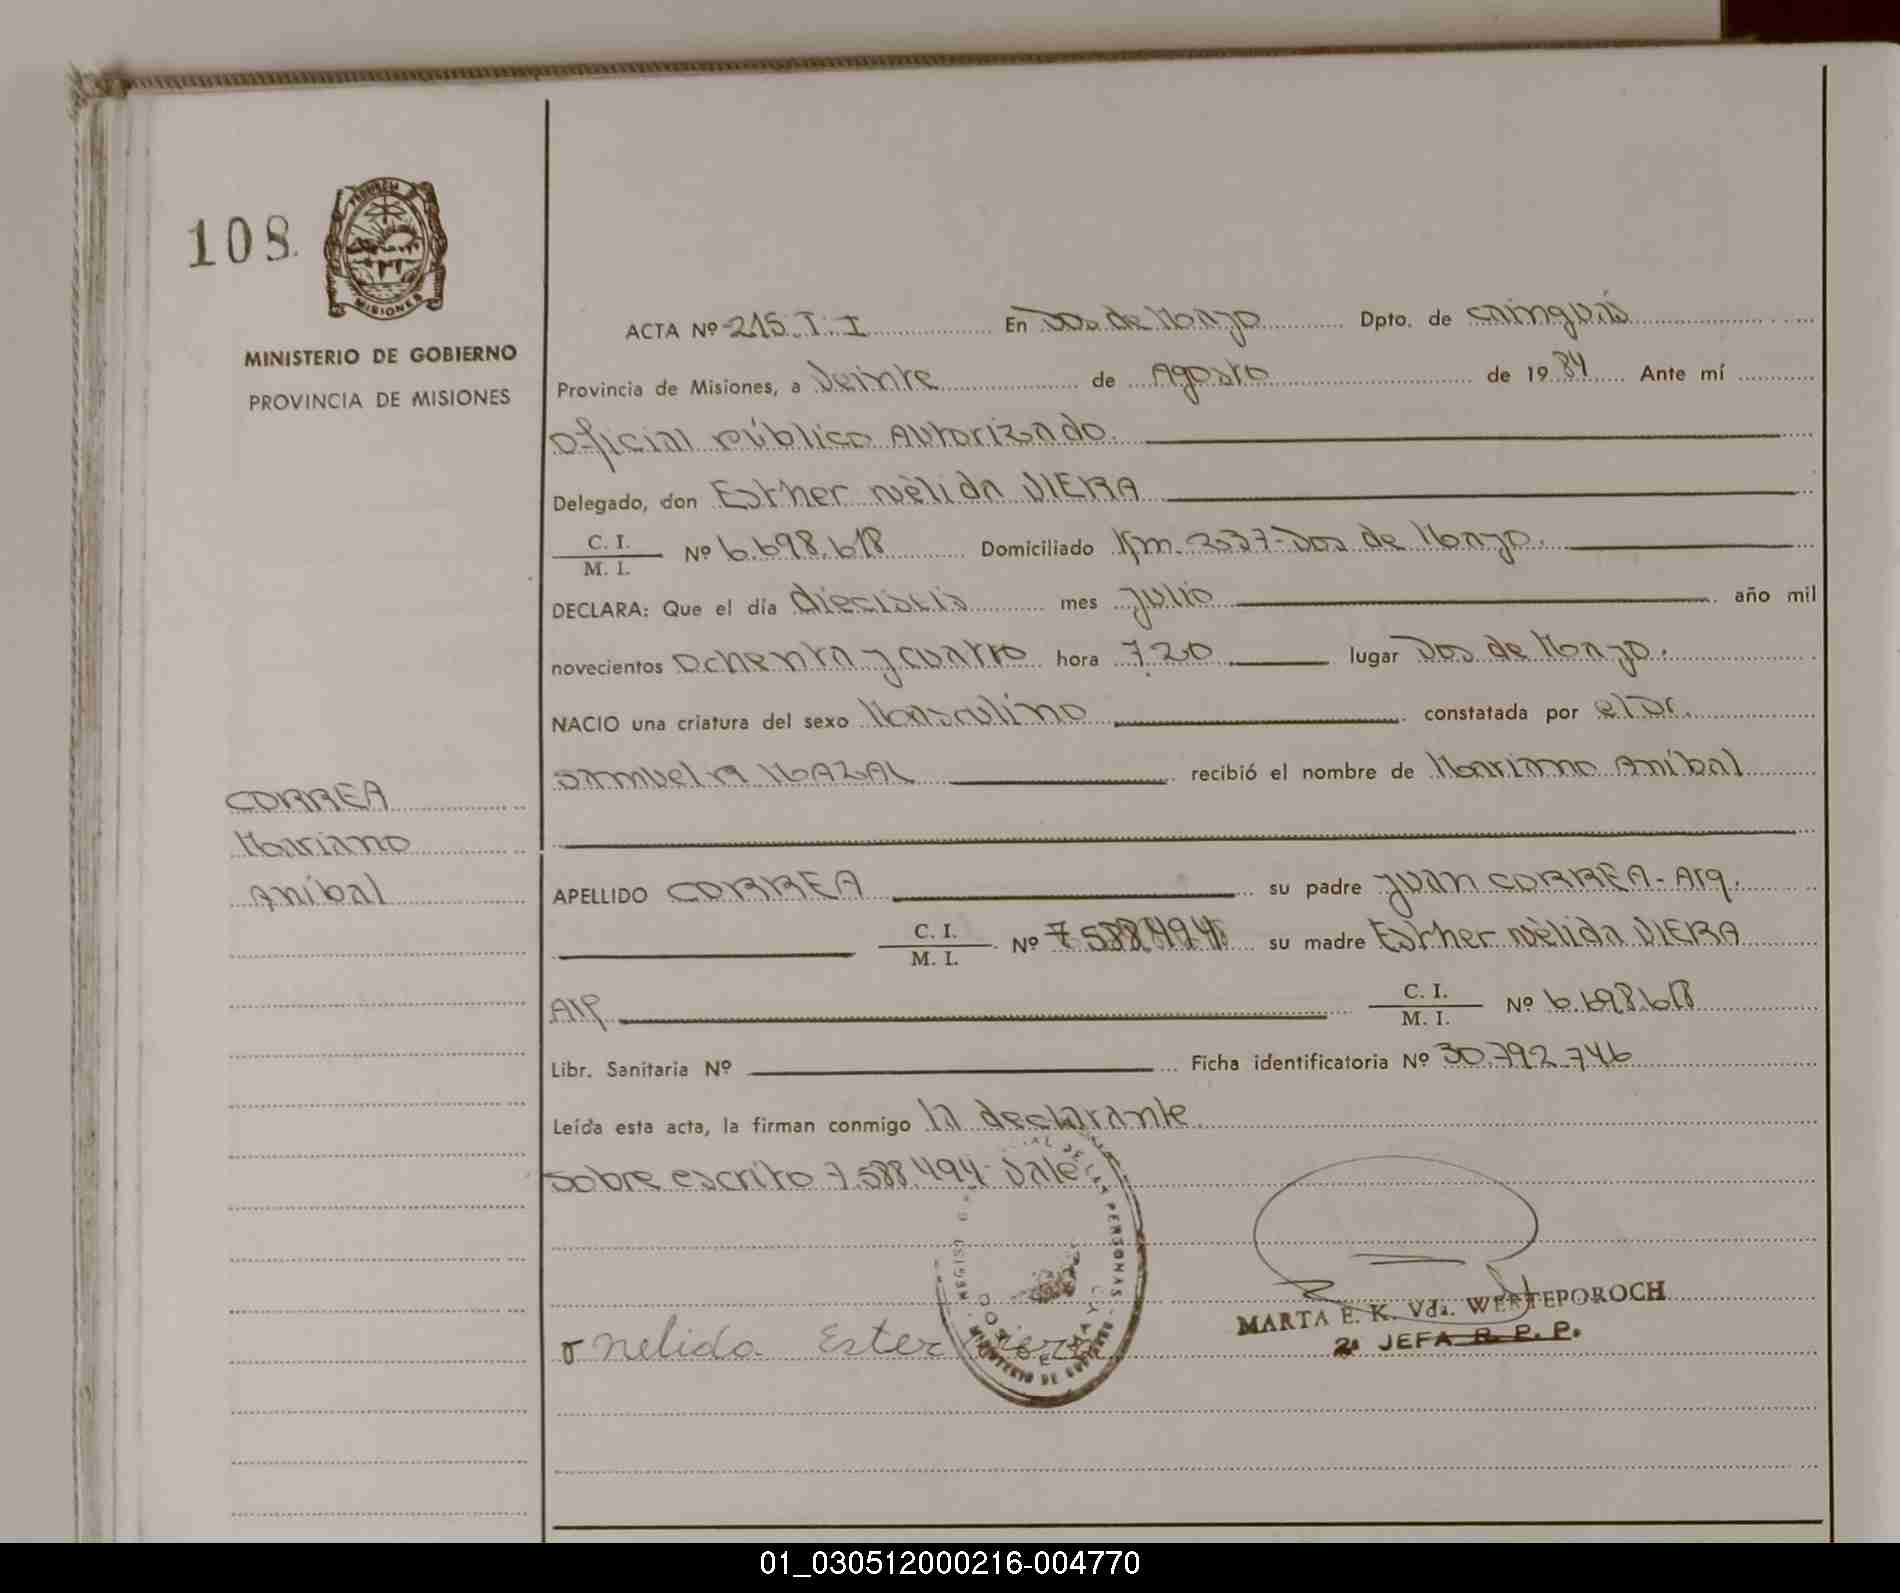 108.
PROVINCIA DE
MISIONES
MINISTERIO DE GOBIERNO
PROVINCIA DE MISIONES
ACTA Nº 215. T. I En Dos de Mayo Dpto. de Cainguás
Provincia de Misiones, a Veinte de Agosto de 1984 Ante mí
Oficial Público Autorizado.
Delegado, don Esther Nèlida VIERA
C. I.
M. I. Nº 6.698.618 Domiciliado Km. 237-Dos de Mayo.
DECLARA: Que el día dieciseis mes Julio año mil
novecientos ochenta y cuatro hora 7.20 lugar Dos de Mayo.
NACIO una criatura del sexo Masculino constatada por el Dr.
Samuel A MAZAL recibió el nombre de Mariano Aníbal
CORREA
Mariano
Aníbal
APELLIDO CORREA su padre Juan CORREA- Arg.
C. I.
M. I. Nº 7.588.494 su madre Esther Nèlida VIERA
Arg. C. I.
M. I. Nº 6.698.618
Libr. Sanitaria Nº Ficha identificatoria Nº 30.792.746
Leída esta acta, la firman conmigo la declarante.
Sobre escrito 7.588.494- Vale
DE LAS PERSONAS
MINISTERIO DE GOBIERNO
DOS DE MAYO
Nelida Ester Viera
MARTA E. K. Vda. WERTEPOROCH
2ª JEFA R. P. P.
01_030512000216-004770